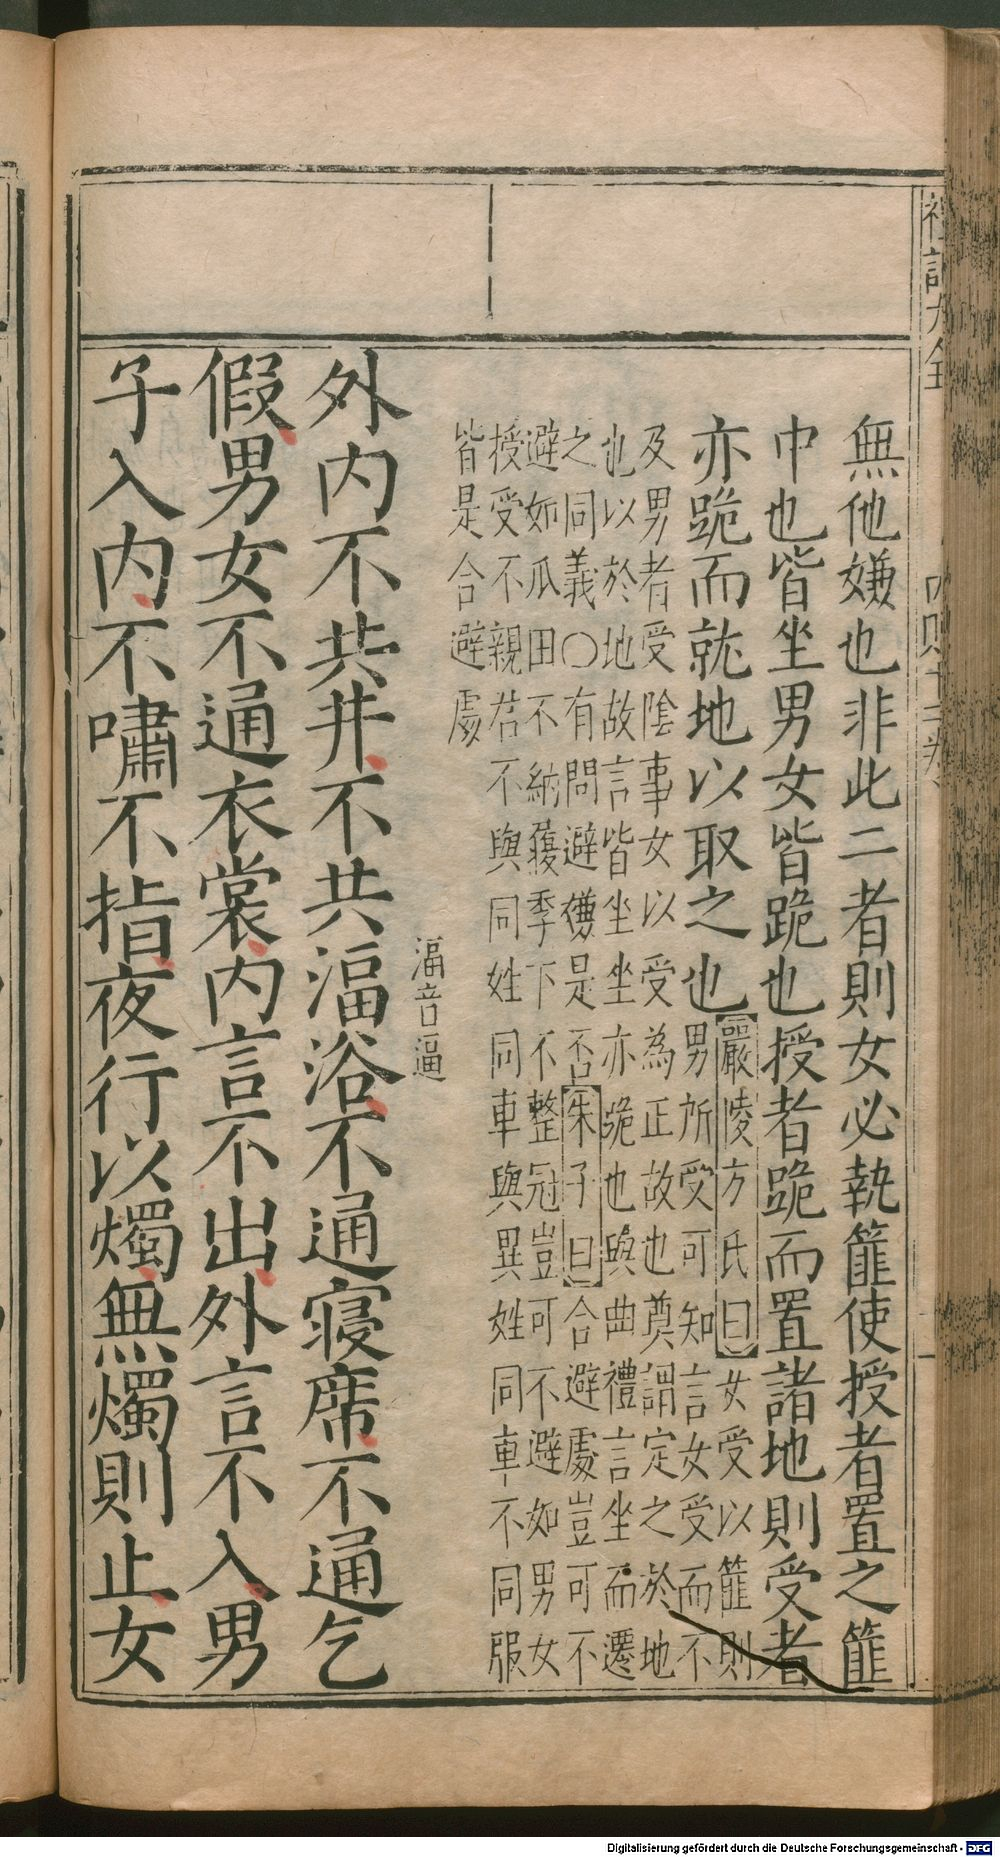 禮記大全
無他嫌也非此二者則女必執篚使授者置之篚
中也皆坐男女皆跪也授者跪而置諸地則受者
亦跪而就地以取之也
嚴陵方氏曰女受以篚則
男所受可知言女受而不
及男者受陰事女以受為正故也奠謂定之於地
也以於地故言皆坐坐亦跪也與曲禮言坐而遷
之同義○有問避嫌是否朱子曰合避處豈可不
避如瓜田不納履季下不整冠豈可不避如男女
授受不親君不與同姓同車與異姓同車不同服
皆是合避處
湢音逼
外内不共井不共湢浴不通寢席不通乞
假男女不通衣裳内言不出外言不入男
子入内不嘯不指夜行以燭無燭則止女
Digitalisierung gefördert durch die Deutsche Forschungsgemeinschaft - DFG